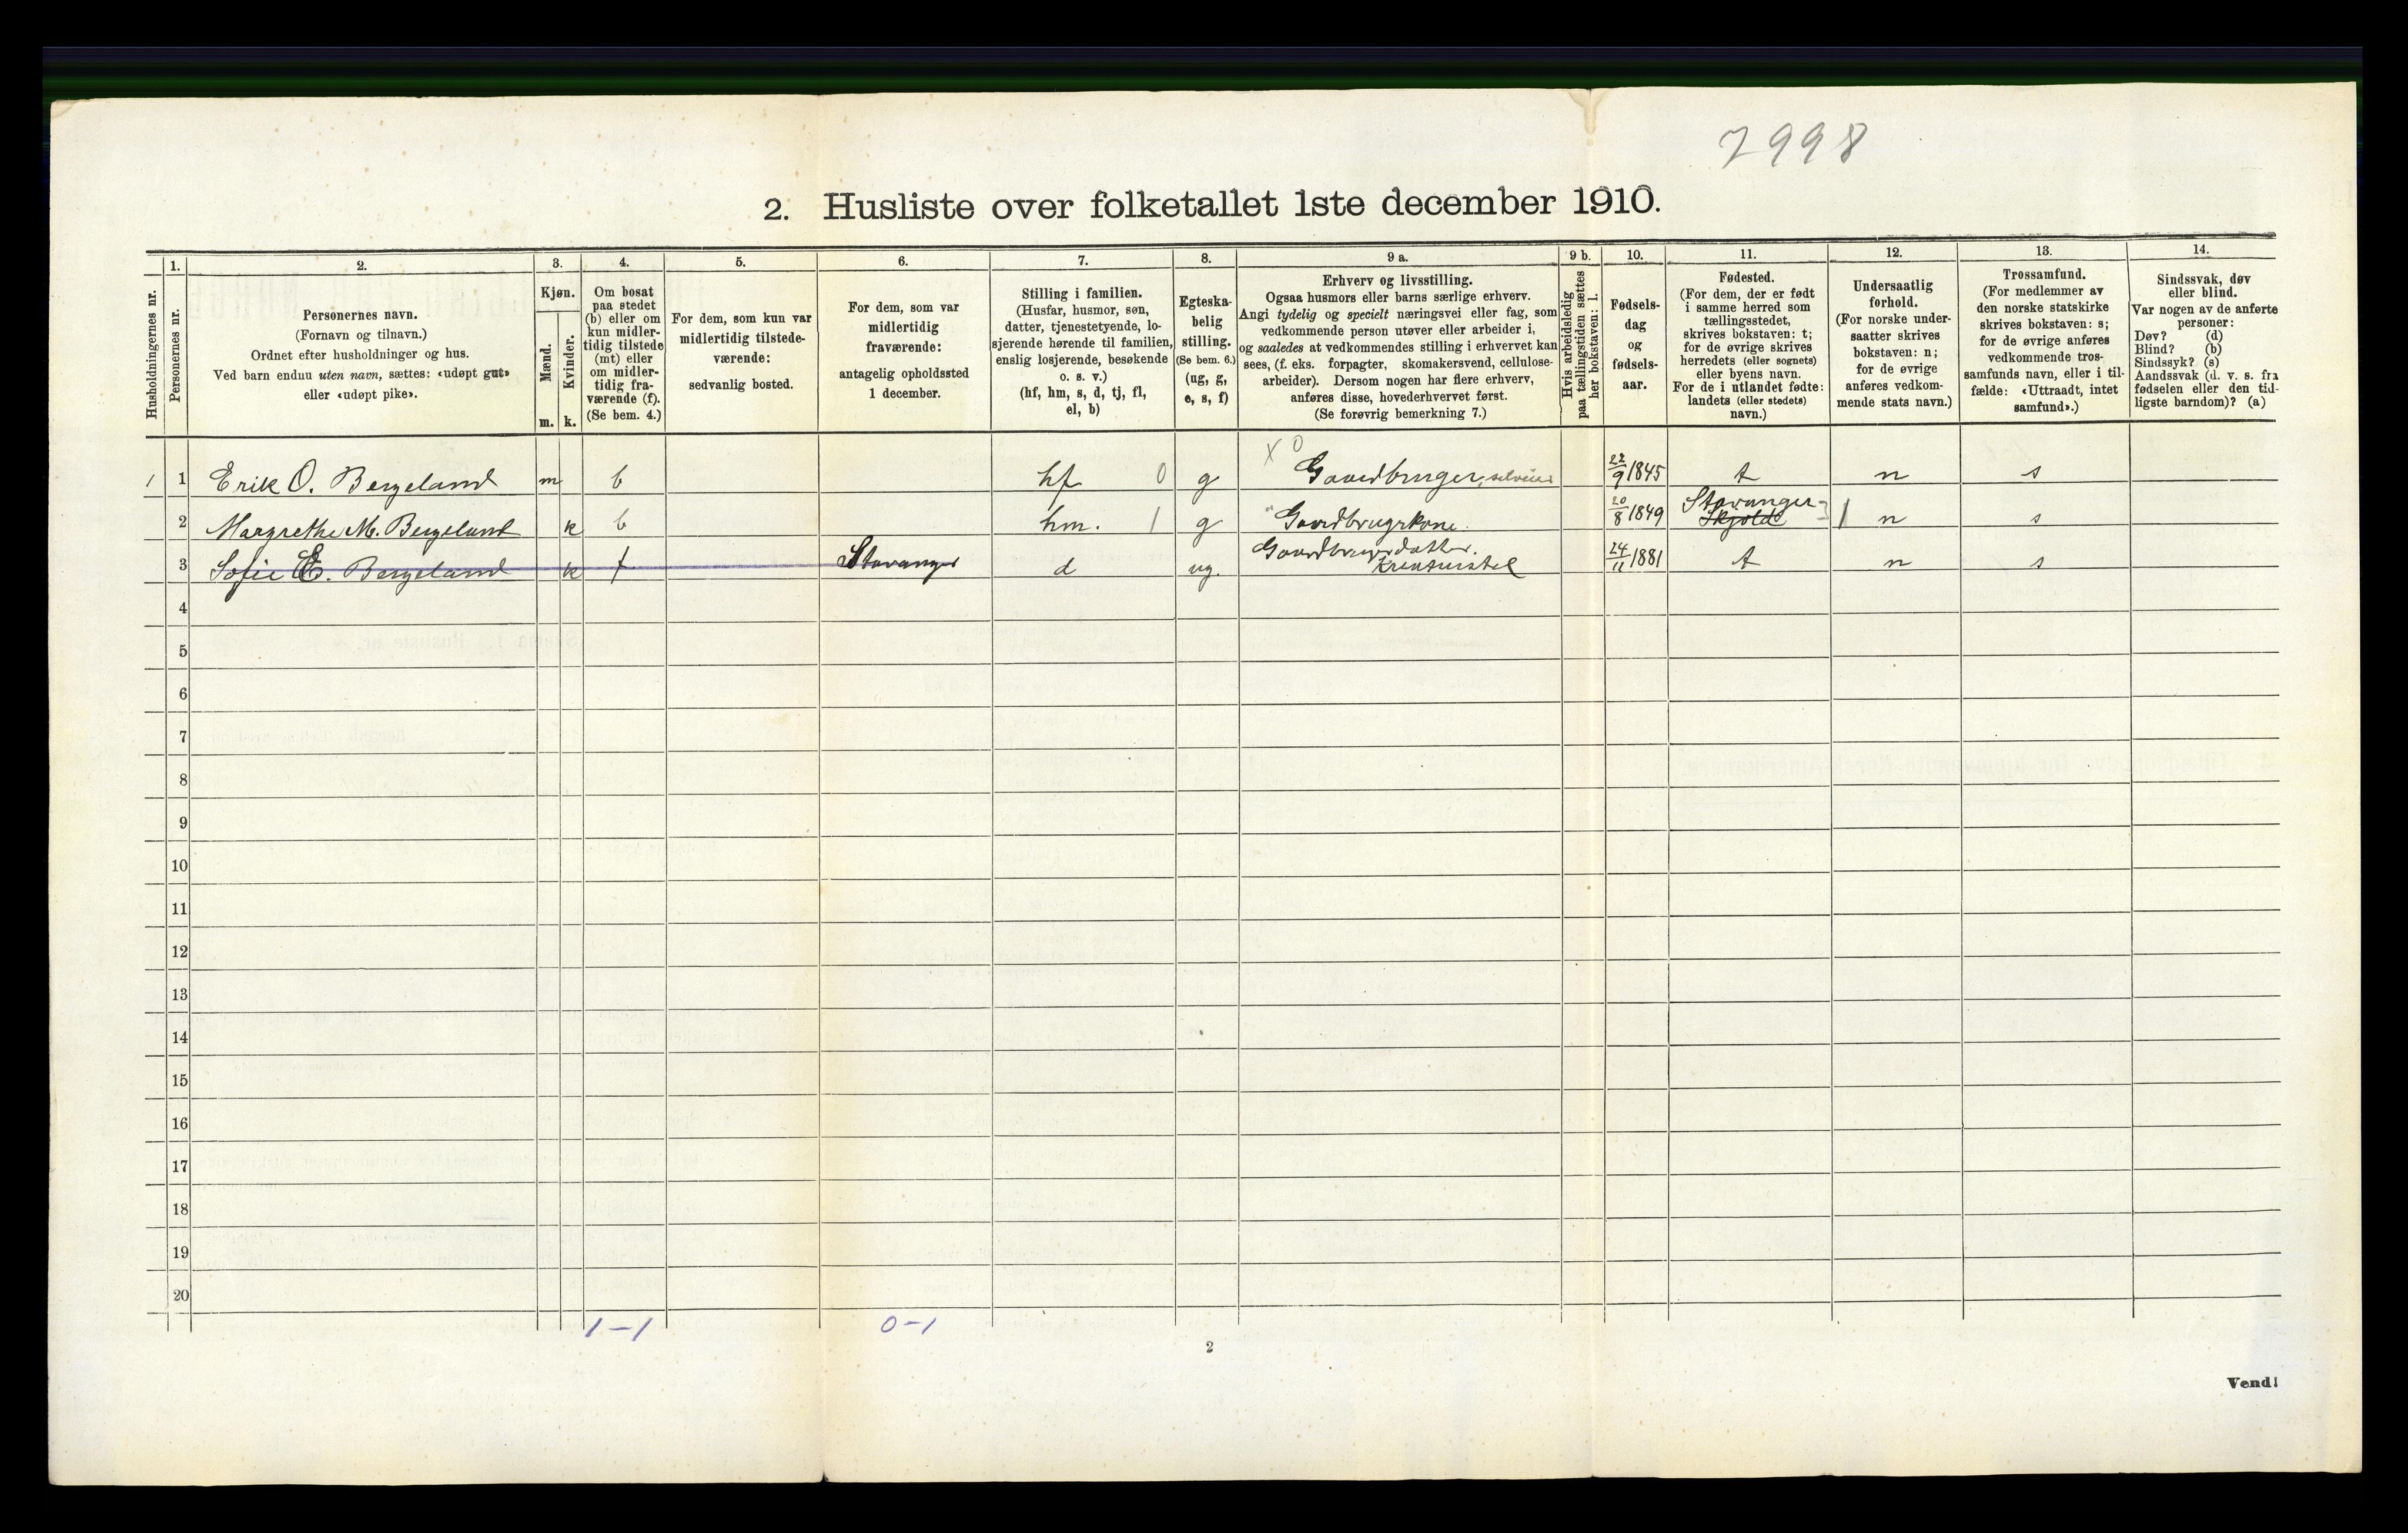 7998
2. Husliste over folketallet 1ste december 1910.
Husholdningernes nr.
1.
Personernes nr.
2.
Personernes navn.
(Fornavn og tilnavn.)
Ordnet efter husholdninger og hus.
Ved barn endnu uten navn, sættes: «udøpt gut»
eller «udøpt pike».
3.
Kjøn.
Mænd.
Kvinder.
m. k.
4.
Om bosat
paa stedet
(b) eller om
kun midler-
tidig tilstede
(mt) eller
om midler-
tidig fra-
værende (f).
(Se bem. 4.)
5.
For dem, som kun var
midlertidig tilstede-
værende:
sedvanlig bosted.
6.
For dem, som var
midlertidig
fraværende:
antagelig opholdssted
1 december.
7.
Stilling i familien.
(Husfar, husmor, søn,
datter, tjenestetyende, lo-
sjerende hørende til familien,
enslig losjerende, besøkende
o. s. v.)
(hf, hm, s, d, tj, fl,
el, b)
8.
Egteska-
belig
stilling.
(Se bem. 6.)
(ug, g,
e, s, f)
9 a.
Erhverv og livsstilling.
Ogsaa husmors eller barns særlige erhverv.
Angi tydelig og specielt næringsvei eller fag, som
vedkommende person utøver eller arbeider i,
og saaledes at vedkommendes stilling i erhvervet kan
sees, (f. eks. forpagter, skomakersvend, cellulose-
arbeider). Dersom nogen har flere erhverv,
anføres disse, hovederhvervet først.
(Se forøvrig bemerkning 7.)
9 b.
Hvis arbeidsledig
paa tællingstiden sættes
her bokstaven: l.
10.
Fødsels-
dag
og
fødsels-
aar.
11.
Fødested.
(For dem, der er født
i samme herred som
tællingsstedet,
skrives bokstaven: t;
for de øvrige skrives
herredets (eller sognets)
eller byens navn.
For de i utlandet fødte:
landets (eller stedets)
navn.)
12.
Undersaatlig
forhold.
(For norske under-
saatter skrives
bokstaven: n;
for de øvrige
anføres vedkom-
mende stats navn.)
13.
Trossamfund.
(For medlemmer av
den norske statskirke
skrives bokstaven: s;
for de øvrige anføres
vedkommende tros-
samfunds navn, eller i til-
fælde: «Uttraadt, intet
samfund».)
14.
Sindssvak, døv
eller blind.
Var nogen av de anførte
personer:
Døv? (d)
Blind? (b)
Sindssyk? (s)
Aandssvak (d. v. s. fra
fødselen eller den tid-
ligste barndom)? (a)
X 0
1 1 Erik O. Bergeland m b hf 0 g Gaardbruger, selveier 22/9 1845 t n s
2 Margrethe M. Bergeland k b hm. 1 g " Gaardbrugrkone. 20/8 1849 Stavanger Skjold 1 n s
3 Sofie E. Bergeland k f Stavanger d ug. Gaardbrugerdatter. Kreaturstel 24/11 1881 t n s
4
5
6
7
8
9
10
11
12
13
14
15
16
17
18
19
20
1-1 0-1
2
Vend!